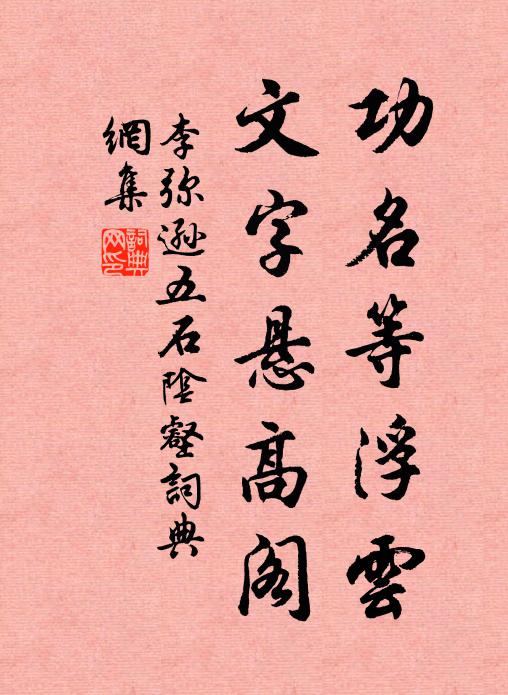 功名等浮雲
文字悬高阁
李弥遜五石陰壑詞典
網集
詞典網印